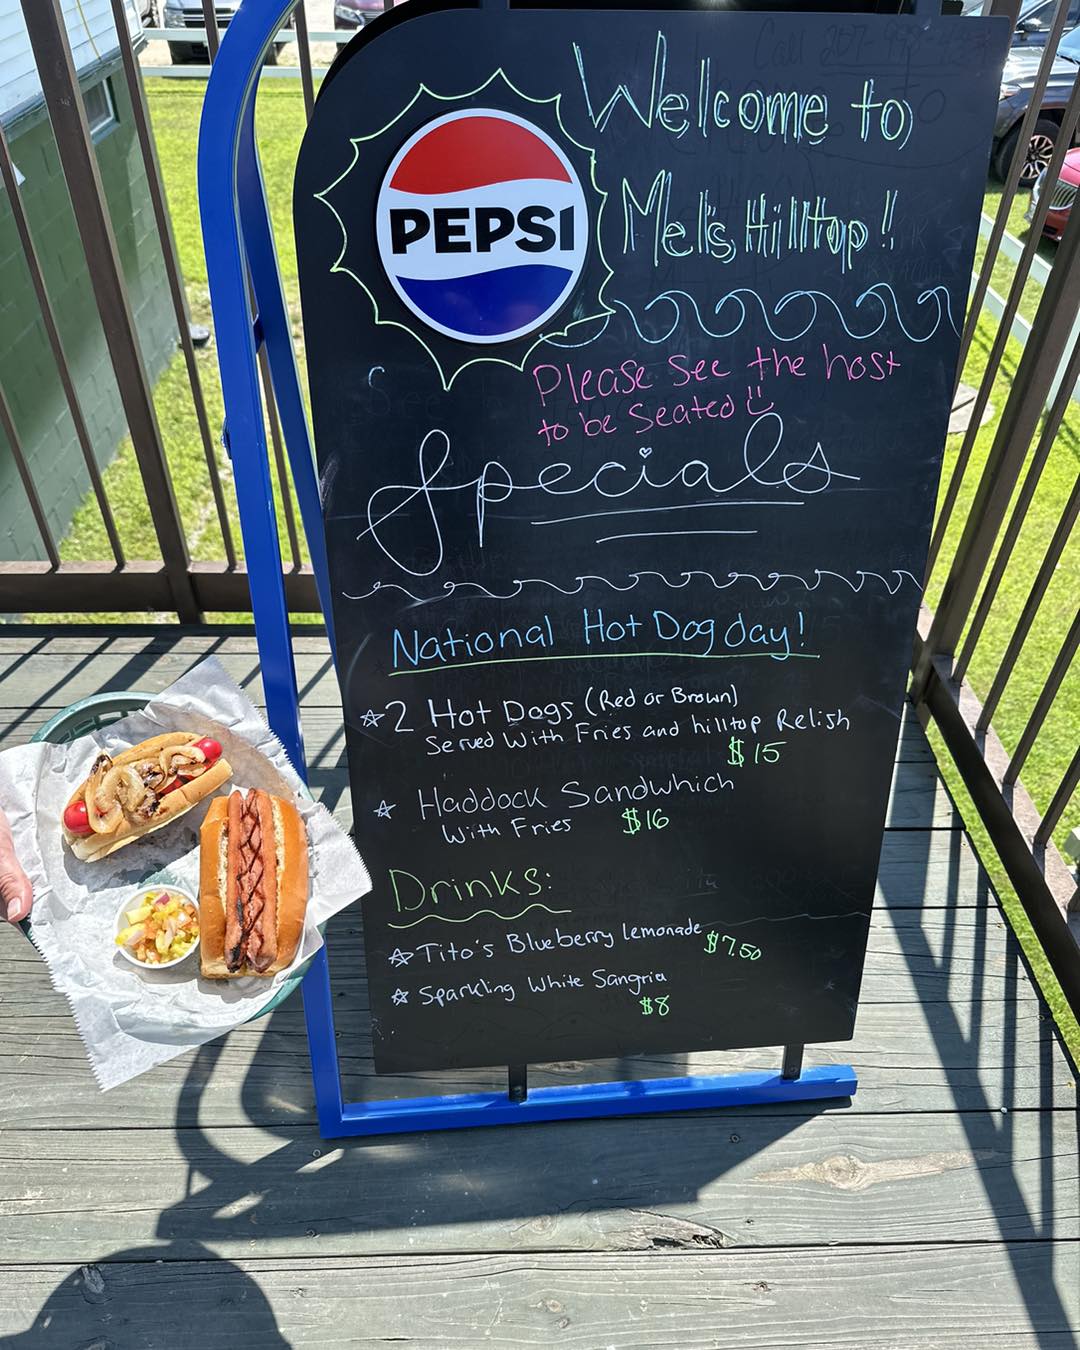 PEPSI
Welcome to
Mel's Hilltop!!
Please See the host
to be Seated
Specials
National Hot Dog day!
2 Hot Dogs (Red or Brown)
Served With Fries and hilltop Relish
$15
Haddock Sandwhich
With Fries $16
Drinks:
Tito's Blueberry lemonade $7.50
Sparkling White Sangria
$8